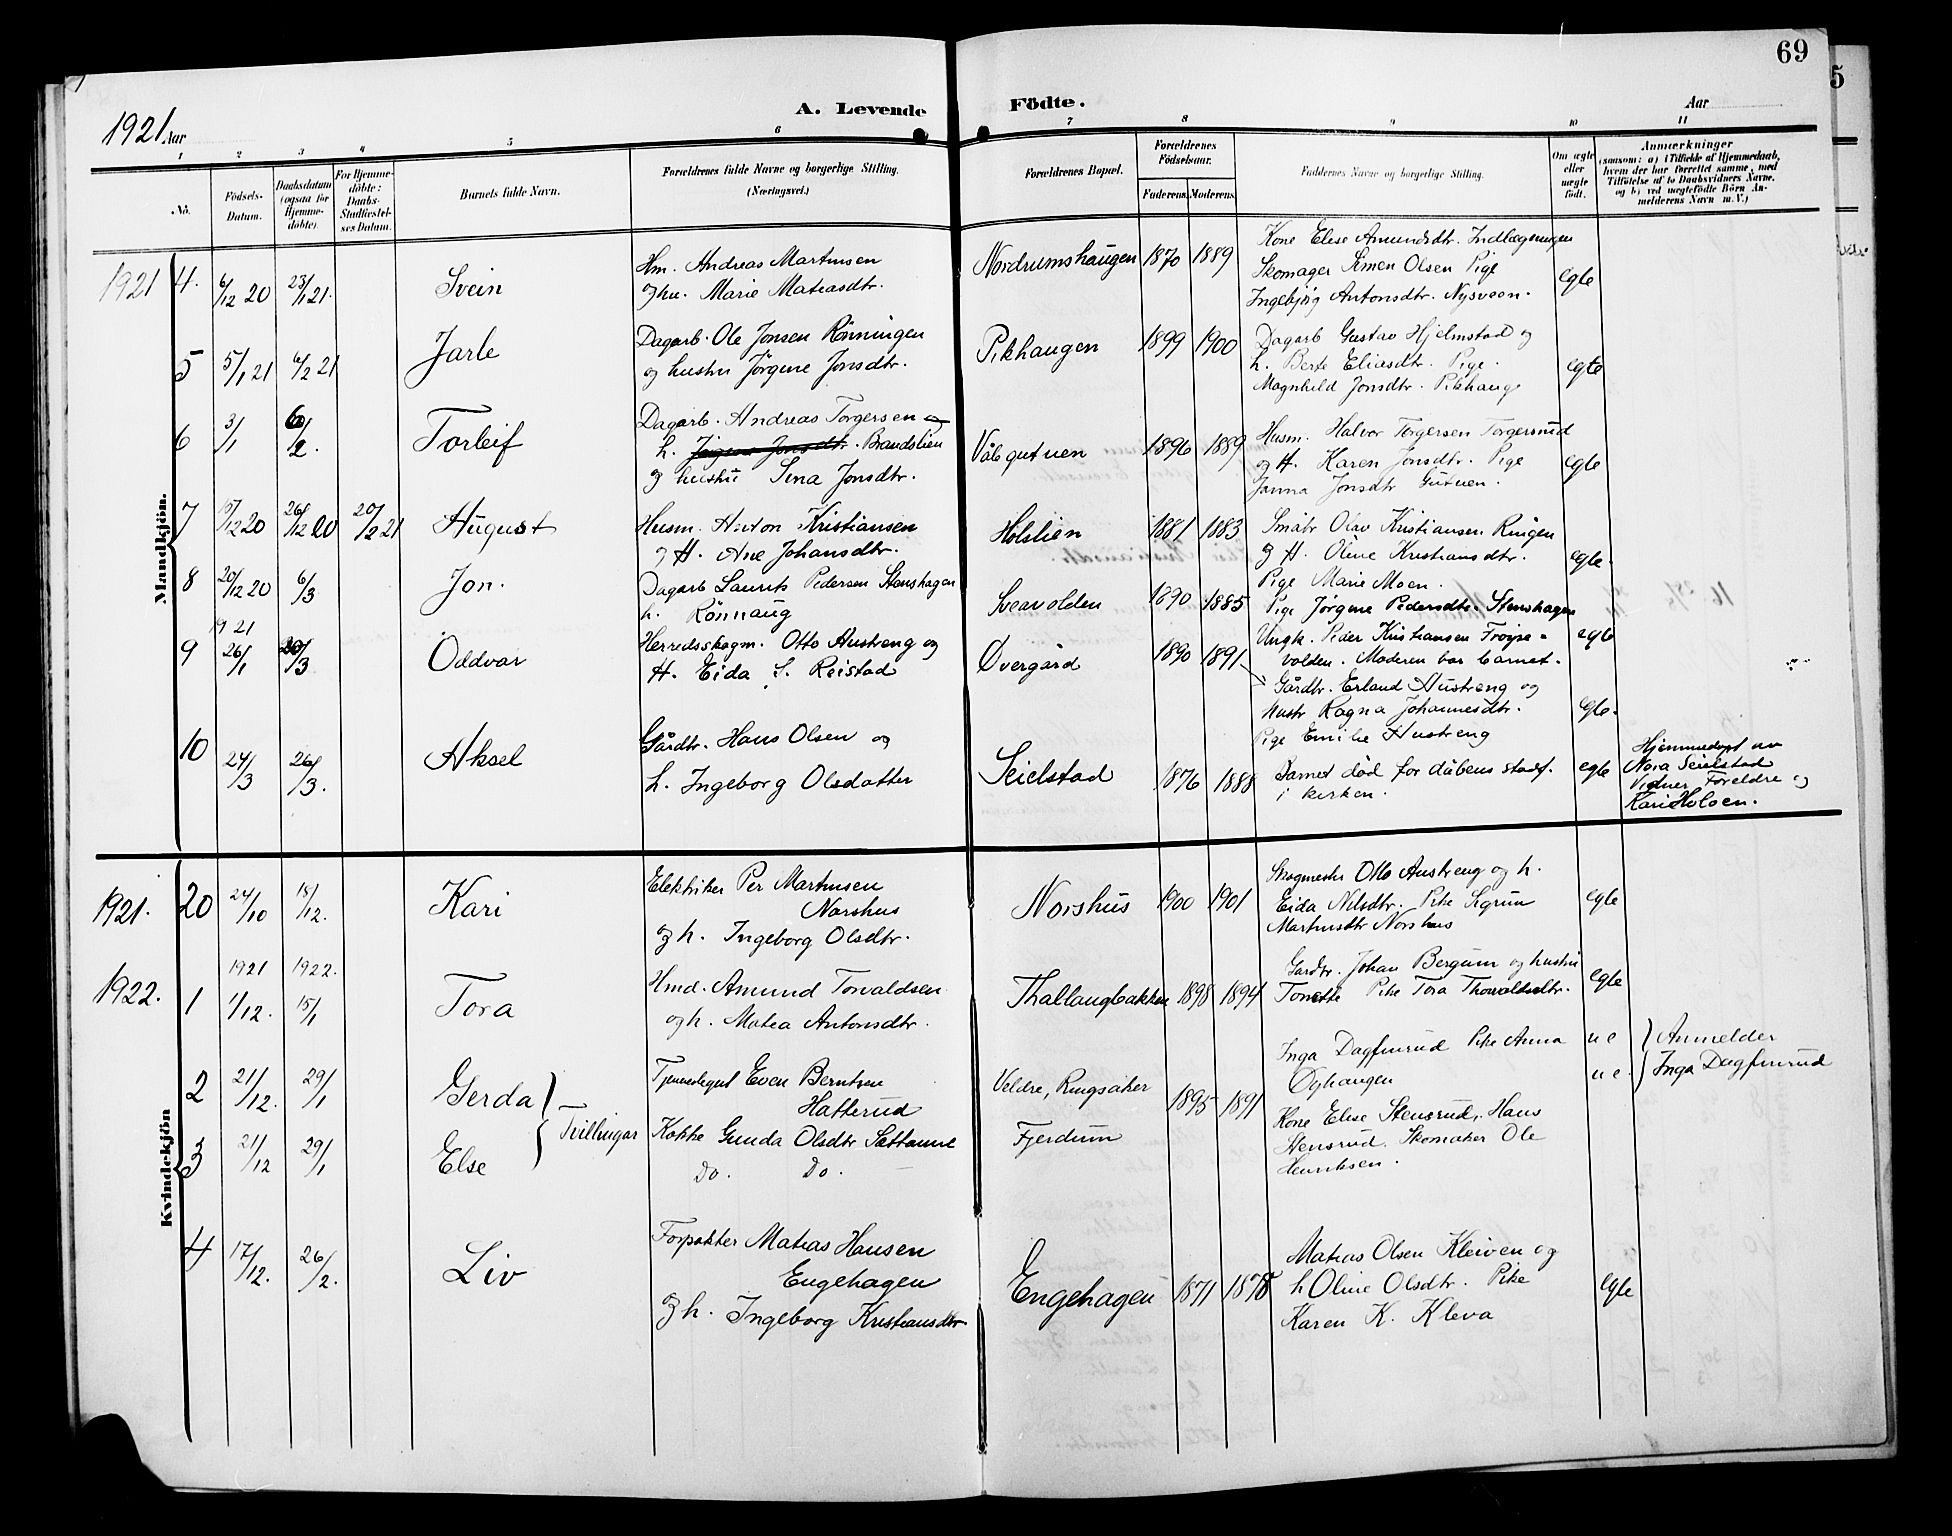 69
5
1921 Aar
A. Levende Födte.
Aar
1 2 3 4 5 6 7 8 9 10 11
No.
Födsels-Datum.
Daabsdatum (ogsaa for Hjemme-döbte).
For Hjemme-döbte: Daabs-Stadfæstel-ses Datum.
Barnets fulde Navn.
Forældrenes fulde Navne og borgerlige Stilling. (Næringsvei.)
Forældrenes Bopæl.
Forældrenes Födselsaar.
Faderens. Moderens.
Faddernes Navne og borgerlige Stilling.
Om ægte eller uægte födt.
Anmærkninger
(saasom: a) i Tilfælde af Hjemmedaab,
hvem der har forrettet samme, med
Tilföielse af to Daabsvidners Navne,
og b) ved uægtefödte Börn An-
melderens Navn m. V.)
Mandkjön.
1921 4. 6/12 20 23/1 21. Svein
Hm. Andreas Martinsen
og hu. Marie Matiasdtr.
Nordrumshaugen 1870 1889
Kone Elise Amundsdtr.
Skomager Simen Olsen Pige
Ingebjörg Antonsdtr. Nysveen.
egte
5 5/1 21 6/2 21 Jarle
Dagarb. Ole Jonsen Rönningen
og hustru Jörgine Jonsdtr.
Pikhaugen 1899 1900
Dagarb Gustav Hjelmstad og
h. Berte Eliasdtr. Pige.
Magnhild Jonsdtr. Pikhaug
egte
6 3/1 6/2 Torleif
Dagarb. Andreas Torgersen
h. Jörgine Jonsdtr. Brandslien
og hustru Sina Jonsdtr.
1896 1889
Husm. Halvor Torgersen Torgersrud
og H. Karen Jonsdtr. Pige
Janna Jonsdtr Gutuen.
egte
7 15/12 20 26/12 20 20/2 21 August
Husm. Anton Kristiansen
og H. Ane Johansdtr.
Holslien 1881 1883
Småbr Olav Kristiansen Ringen
og H. Oline Kristiansdtr.
Pige Marie Moen.
egte.
8 20/12 20 6/3 Jon.
Dagarb Laurits Pedersen Stenshagen
h. Rönnaug
Sveavolden 1890 1885
Pige Jörgine Pedersdtr. Stenshagen
Ungk. Peder Kristiansen Troyse-
volden. Moderen bar barnet.
egte
9 1921 26/1 20/3 Oddvar
Herredsskogm. Otto Austreng og
H. Eida S. Reistad
Övergård 1890 1891
Gårdbr. Erland Austreng og
hustr Ragna Johannesdtr.
Pige Emilie Austreng
egte.
10 24/3 26/3. Aksel
Gårdbr. Hans Olsen og
h. Ingeborg Olsdatter
Seielstad 1876 1888
Barnet död for dåbens stadf.
i kirken.
egte
Hjemmedöpt av
Nora Seielstad
Vidner Foreldre og
Kari Holoen.
Kvindekjön
1921. 20 24/10 18/12. Kari
Elektriker Per Martinsen
Norshus
og h. Ingeborg Olsdtr.
Norshus 1900 1901
Skogmester Otto Austreng og h.
Eida Nilsdtr. Pike Sigrun
Martinsdtr Norshus
egte
1922. 1 1921 1/12. 1922. 15/1 Tora
Hmd. Amund Torvaldsen
og h. Matea Antonsdtr.
Thallaugbakken 1898 1894
Gardbr. Johan Bergum og hustru
Tonette Pike Tora Thorvaldsdtr.
egte
2 21/12. 29/1 Gerda
Tvillinger
Tjenestegut Even Berntsen
Hatterud
Veldre, Ringsaker 1895 1891
Inga Dagfinrud Pike Anna
Öyhaugen
ue
ue.
Anmelder
Inga Dagfinrud
3 21/12 29/1 Else
Kokke Gunda Olsdtr
Do. Do.
Fjerdum
Kone Elise Stensrud, Hans
Stensrud, Skomaker Ole
Henriksen.
4 17/12. 26/2. Liv
Forpakter Matias Hansen
Engehagen
og h. Ingeborg Kristiansdtr.
Engehagen 1871 1878
Matias Olsen Kleiven og
h Oline Olsdtr. Pike
Karen K. Kleva
egte